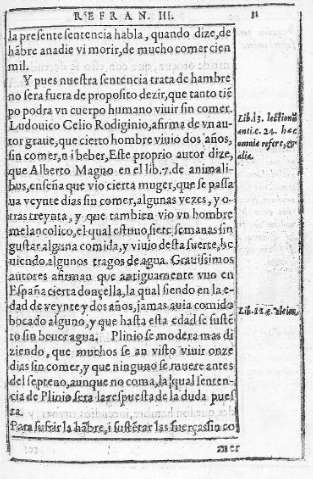 REFRAN. III.
la presente sentencia habla, quando dize, de
hãbre anadie vi morir, de mucho comer cien
mil.
Y pues nuestra sentencia trata de hambre
no sera fuera de proposito dezir, que tanto tiẽ
po podra vn cuerpo humano viuir sin comer.
Ludouico Celio Rodiginio, afirma de vn au-
tor graue, que cierto hombre viuio dos años,
sin comer, ni beber, Este proprio autor dize,
que Alberto Magno en el lib. 7. de animali-
bus, enseña que vio cierta muger, que se passa
ua veynte dias sin comer, algunas vezes, y o-
tras treynta, y que tambien vio vn hombre
melancolico, el qual estuuo, siete semanas sin
gustar alguna comida, y viuio desta suerte, be
uiendo algunos tragos de agua. Grauissimos
autores afirman que antiguamente vuo en
España cierta donçella, la qual siendo en la e-
dad de veynte y dos años, jamas auia comido
bocado alguno, y que hasta esta edad se sustẽ
to sin beuer agua. Plinio se modera mas di
ziendo, que muchos se an visto viuir onze
dias sin comer, y que ninguno se muere antes
del septeno, aunque no coma, la qual senten-
cia de Plinio sera la respuesta de la duda pues
ta.
Para sufrir la hãbre, i sustẽtar las fuerças sin co
mer
Lib. 13. lectionũ
anti. c. 24. hęc
omnia refert, &
alia.
Lib. 11. c.